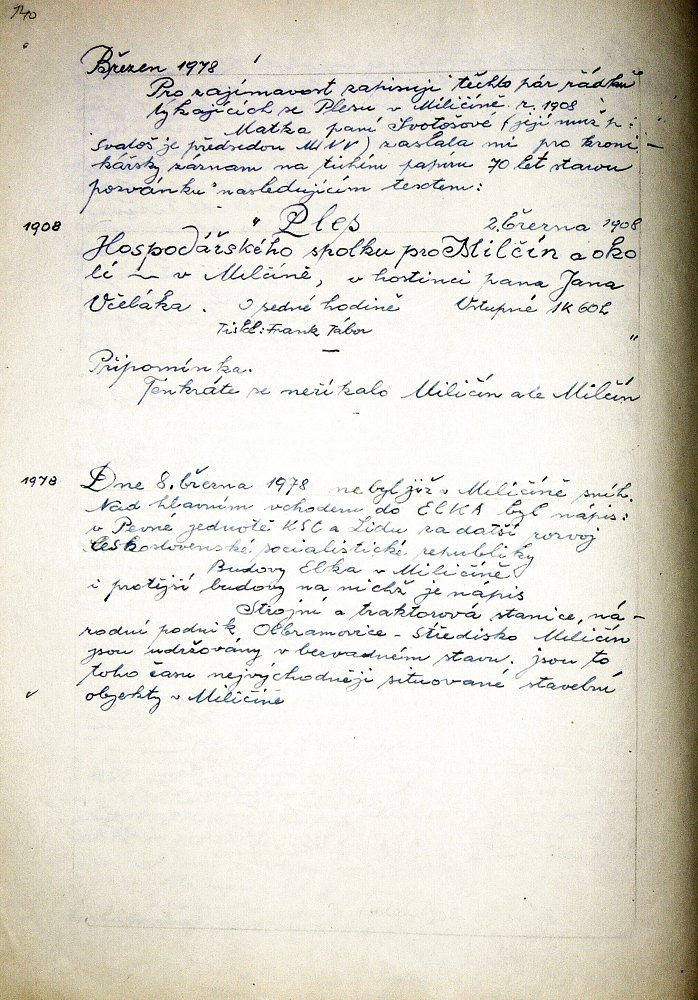 140
Březen 1978
Pro zajímavost zapisuji těchto pár řádků
týkajících se Plesu v Miličíně r. 1908
Matka paní Svatošové (její muž p.
Svatoš je předsedou MNV) zaslala mi pro kroni-
kářský záznam na tuhém papíru 70 let starou
pozvánku následujícím textem:
1908 " Ples 2. března 1908
Hospodářského spolku pro Milčín a oko
lí — v Milčíně, v hostinci pana Jana
Včeláka. O sedmé hodině Vstupné 1K 60h
Tiskl: Frank Tábor "
Připomínka.
Tenkráte se neříkalo Miličín ale Milčín
1978 Dne 8. března 1978 nebyl již v Miličíně sníh.
Nad hlavním vchodem do ELKA byl nápis:
v Pevné jednotě KSČ a Lidu za další rozvoj
Československé socialistické republiky
Budovy Elka v Miličíně
i protější budovy na nichž je nápis
Strojní a traktorová stanice, ná-
rodní podnik Olbramovice - středisko Miličín
jsou udržovány v bezvadném stavu. jsou to
toho času nejvýchodněji situované stavební
objekty v Miličíně